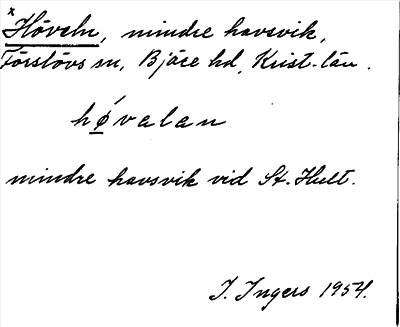 x Höveln, mindre havsvik,
Förslövs sn, Bjäre hd, Krist. län.
hø´valan
mindre havsvik vid St. Hult.
I. Ingers 1954.